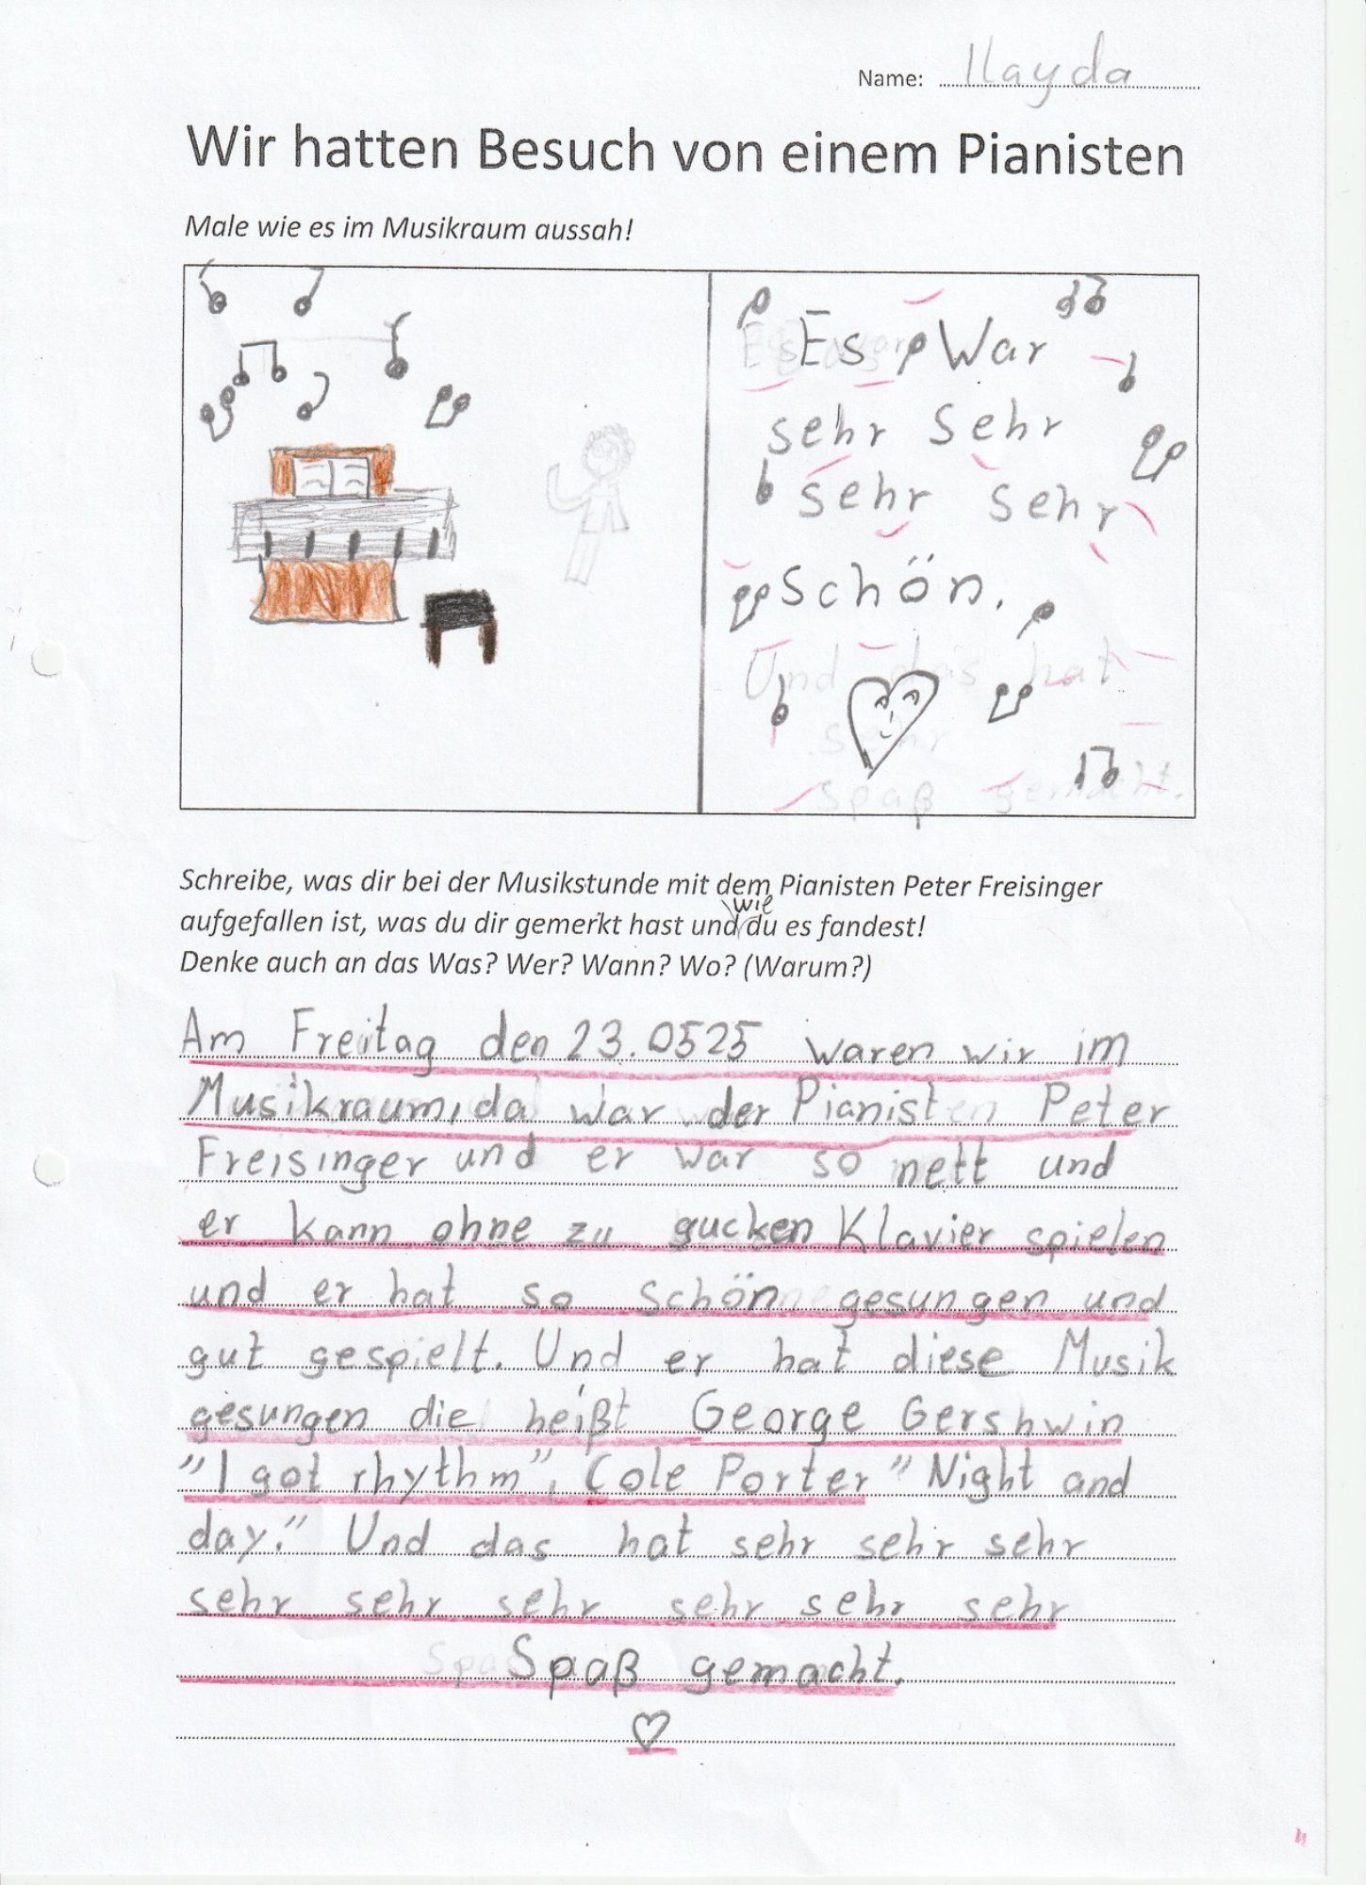 Name: Ilayda
Wir hatten Besuch von einem Pianisten
Male wie es im Musikraum aussah!
Es War
sehr sehr
sehr sehr
schön.
Und das hat
sehr
Spaß gemacht.
Schreibe, was dir bei der Musikstunde mit dem Pianisten Peter Freisinger
wie
aufgefallen ist, was du dir gemerkt hast und du es fandest!
Denke auch an das Was? Wer? Wann? Wo? (Warum?)
Am Freitag den 23.0525 waren wir im
Musikraum, da war der Pianist Peter
Freisinger und er war so nett und
er kann ohne zu gucken Klavier spielen
und er hat so schön gesungen und
gut gespielt. Und er hat diese Musik
gesungen die heißt George Gershwin
"I got rhythm", Cole Porter "Night and
day." Und das hat sehr sehr sehr
sehr sehr sehr sehr sehr sehr
Spaß gemacht.